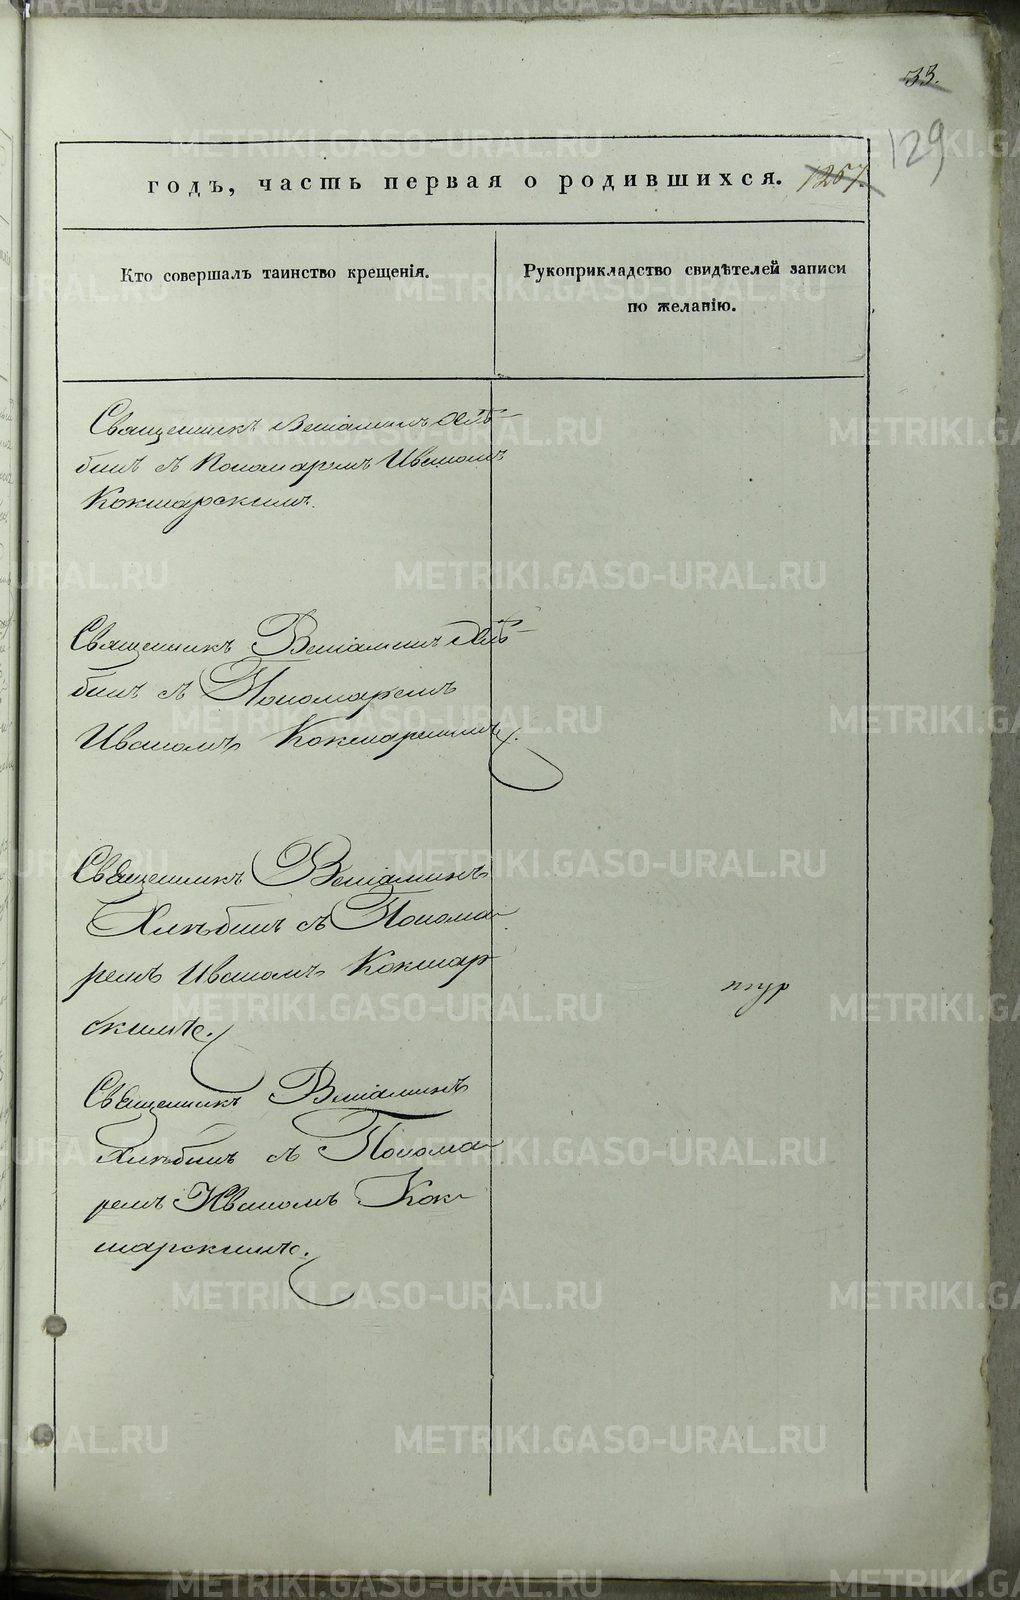 33.
129
годъ, часть первая о родившихся. 1257.
Кто совершалъ таинство крещенія.
Рукоприкладство свидѣтелей записи
по желанію.
Священникъ Веніаминъ Хлѣ-
бинъ съ Пономаремъ Иваномъ
Кокшарскимъ.
Священникъ Веніаминъ Хлѣ-
бинъ съ Пономаремъ
Иваномъ Кокшарскимъ.
Священникъ Веніаминъ
Хлѣбинъ съ Понома-
ремъ Иваномъ Кокшар
скимъ.
Священникъ Веніаминъ
Хлѣбинъ съ Понома-
ремъ Иваномъ Кок-
шарскимъ.
METRIKI.GASO-URAL.RU